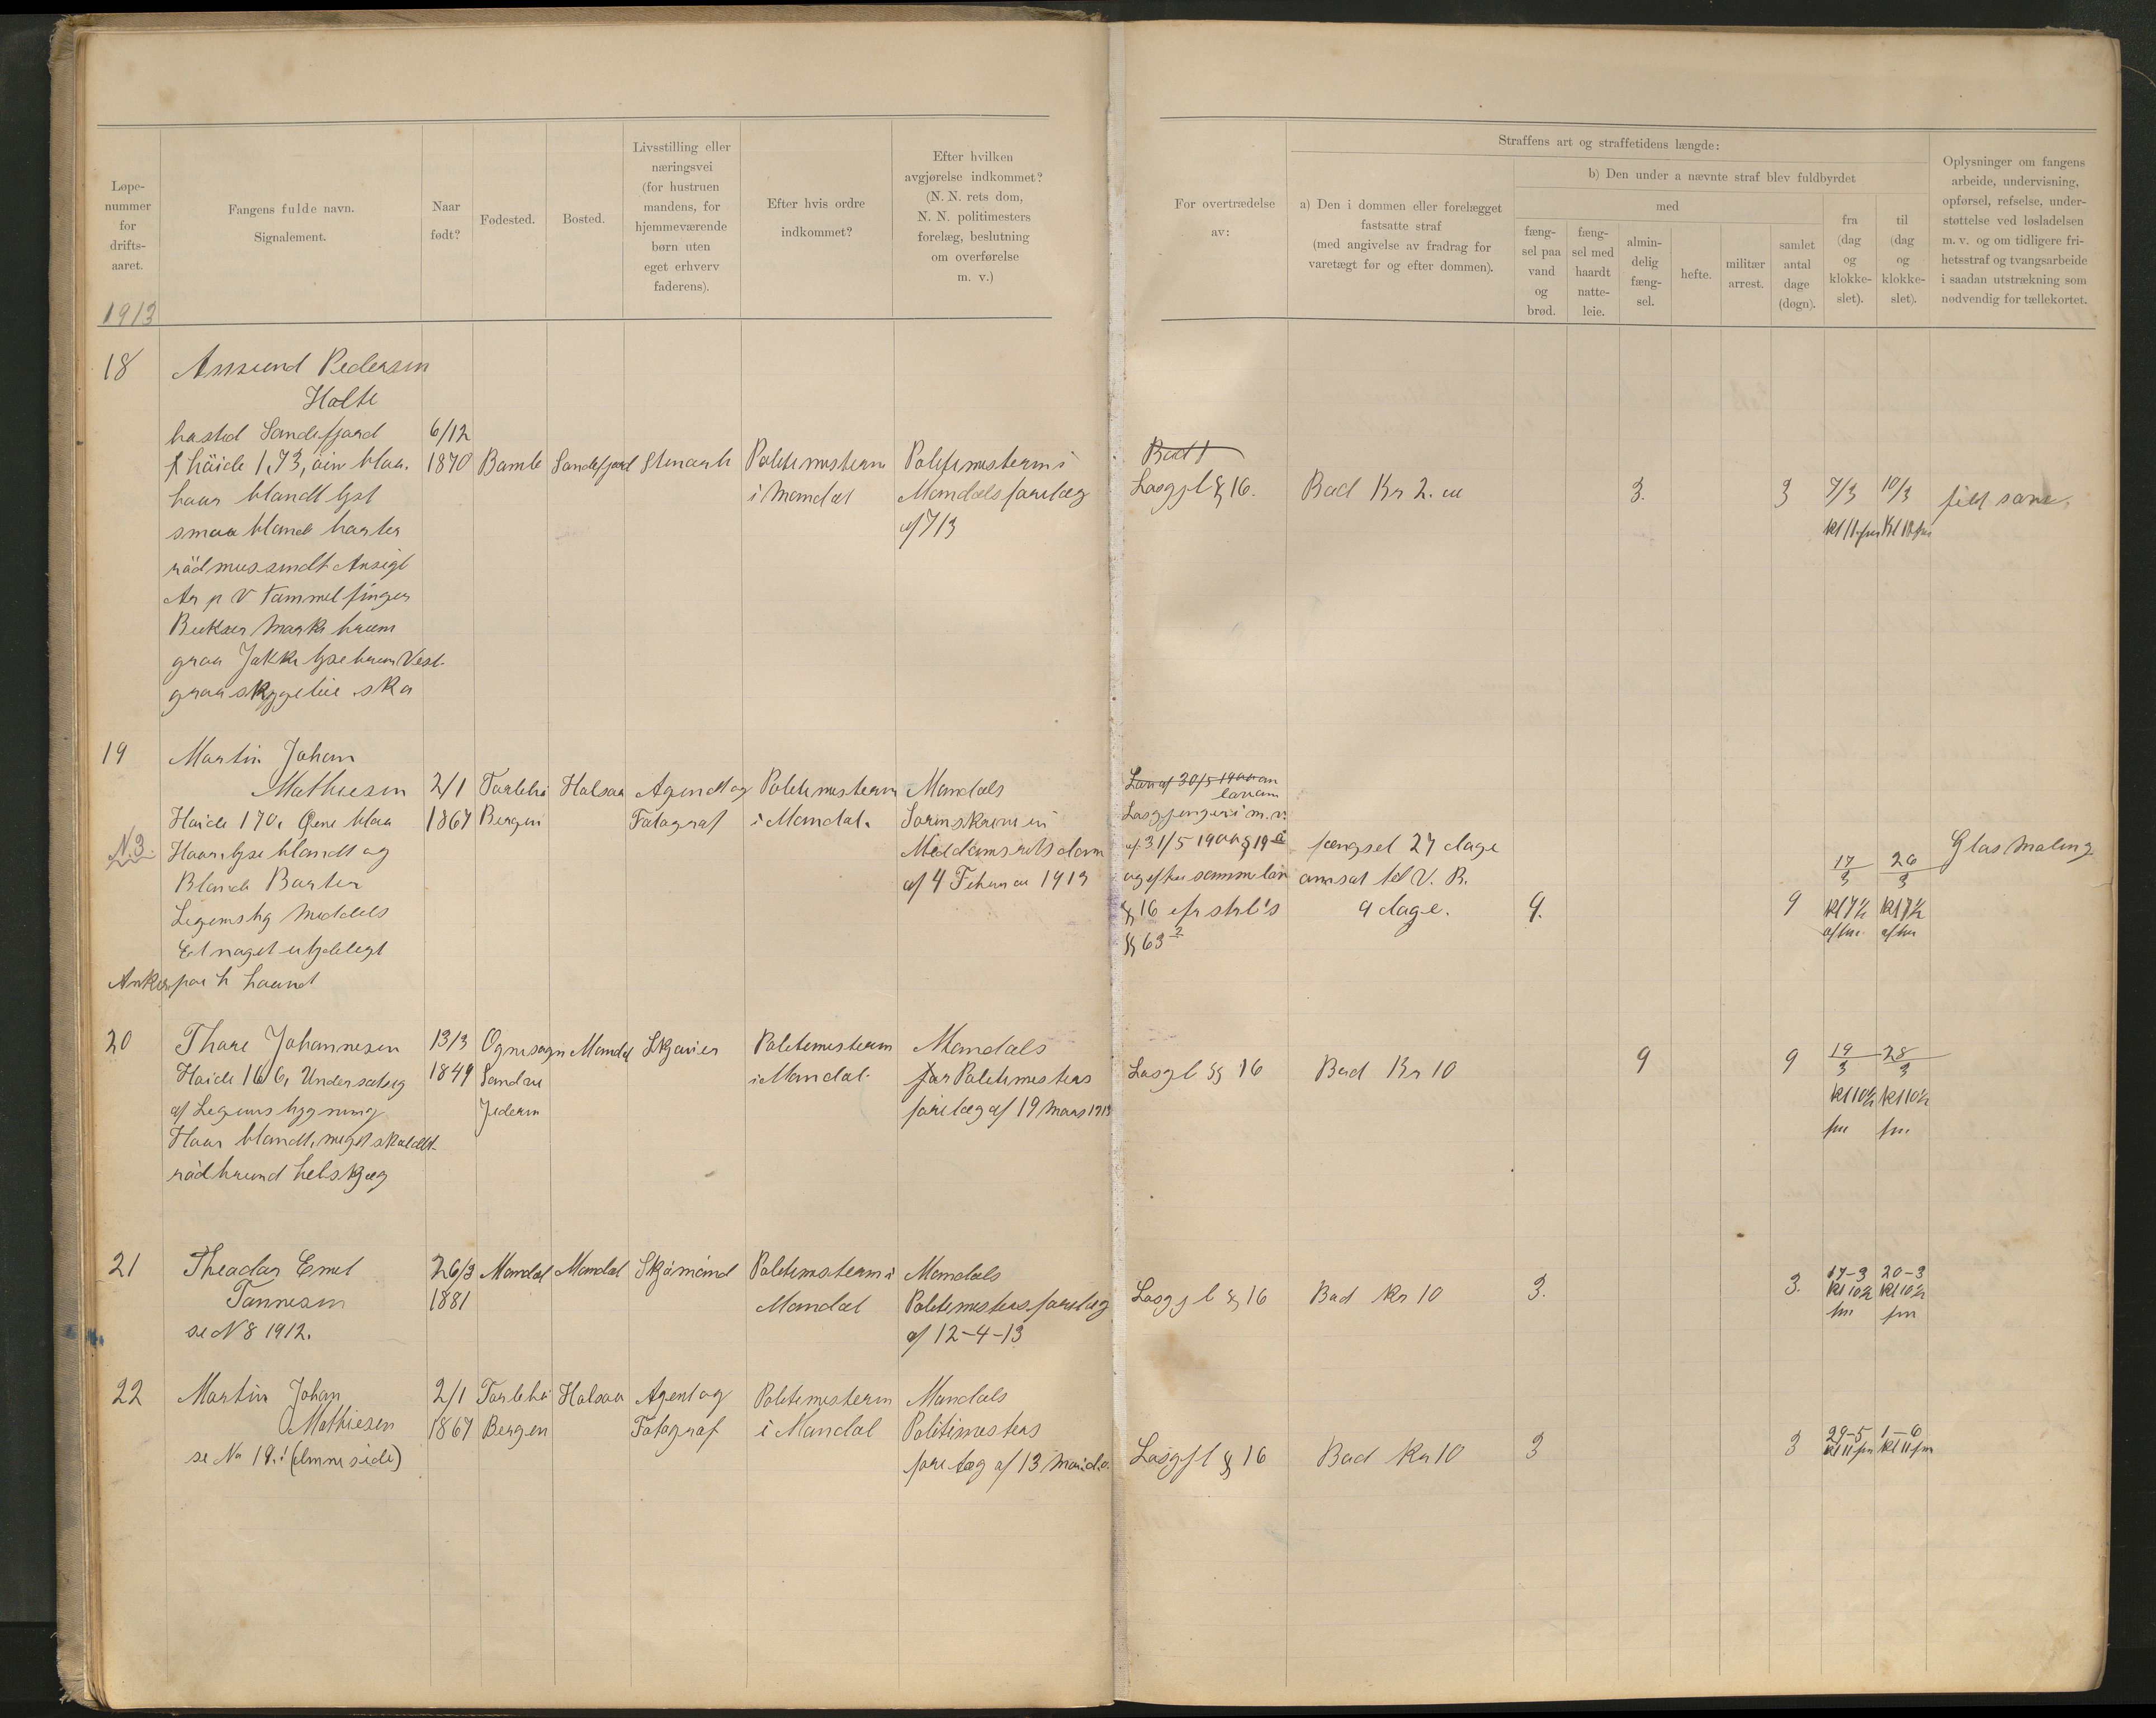 Løpe-
nummer
for
drifts-
aaret.
Fangens fulde navn.
Signalement.
Naar
født?
Fødested.
Bosted.
Livsstilling eller
næringsvei
(for hustruen
mandens, for
hjemmeværende
børn uten
eget erhverv
faderens).
Efter hvis ordre
indkommet?
Efter hvilken
avgjørelse indkommet?
(N. N. rets dom,
N. N. politimesters
forelæg, beslutning
om overførelse
m. v.)
For overtrædelse
av:
Straffens art og straffetidens længde:
a) Den i dommen eller forelægget
fastsatte straf
(med angivelse av fradrag for
varetægt før og efter dommen).
b) Den under a nævnte straf blev fuldbyrdet
med
fæng-
sel paa
vand
og
brød.
fæng-
sel med
haardt
natte-
leie.
almin-
delig
fæng-
sel.
hefte.
militær
arrest.
samlet
antal
dage
(døgn).
fra
(dag
og
klokke-
slet).
til
(dag
og
klokke-
slet).
Oplysninger om fangens
arbeide, undervisning,
opførsel, refselse, under-
støttelse ved løsladelsen
m. v. og om tidligere fri-
hetsstraf og tvangsarbeide
i saadan utstrækning som
nødvendig for tællekortet.
1913
18
Pedersen
Holte
bosted Sandefjord
häide 1,73, öin blaa.
haar blandt lyst
smaa blond barter
Ansigt
Ar p V Tommelfinger
Bukser mørk brun
graa Jakke lysebrun Vest
graa skyggelue sko
6/12
1870
Bamle
Sandefjord
Politimesteren
i Mandal
Politimesteren i
Mandals forelæg
af 7/3
Løsgjl § 16.
Bod Kr 2.
3.
3
7/3
10/3
19
Martin Johan
Mathiesen
Haide 170, Øine blaa
Haar lyse blondt og
Blonde Barter
Legemsbyg Middels
Et noget utydelegt
Anker paa h haand
N. 3.
2/1
1867
Bergen
Halsaa
Agendt og
Fotograf
Politimesteren
i Mandal.
Mandals
Sorenskriveri
Meddomsrets dom
af 4 Februar 1913
Løsgjengeri m. v.
af 31/5 1900 § 19
og efter samme lov
§ 16 cfr strl's
§ 63 2
fængsel 27 dage
omsat til V. B.
9 dage.
9.
9
17/3
26/3
kl 7½
kl 7½
Glas Maling
20
Thore Johannesen
Haide 166, Undersætsig
af Legems bygning
Haar blondt, meget skaldet
rødbrund helskjæg
13/3
1849
Ognesogn
Søndre
Jederen
Mandal
Politimesteren
i Mandal
Mandals
Politimesters
forelæg af 19 Mars 1913
Løsgl § 16
Bod Kr 10
9
9
19/3
28/3
kl 10½
kl 10½
fm
fm
21
Theodor Emil
Tønnesen
se N 8 1912.
26/3
1881
Mandal
Mandal
Sjømand
Politimesteren i
Mandal
Mandals
Politimesters forelæg
af 12-4-13
Løsgjl § 16
Bod Kr 10
3.
3.
17-3
20-3
kl 10½
kl 10½
fm
fm
22
Martin Johan
Mathiesen
se No 19. (denne side)
2/1
1867
Bergen
Halsaa
Agent og
Fotograf
Politimesteren
i Mandal
Mandals
Politimesters
forelæg af 13 Mai d.a.
Løsgjl § 16
Bod Kr 10
3
3
29-5
1-6
kl 11 fm
kl 11 fm